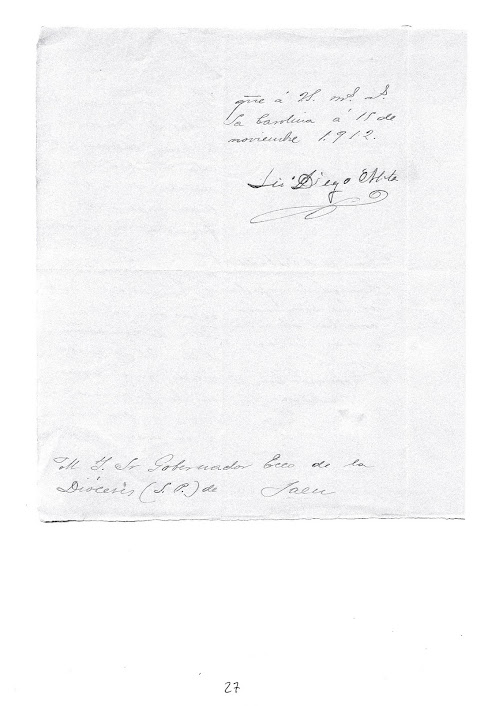 gue á V. m.ˢ a.ˢ
La Carolina á 15 de
noviembre 1.912.
Lic. Diego
M. Y. Sr Gobernador Ecco de la
Diócesis (S. P.) de Jaen
27